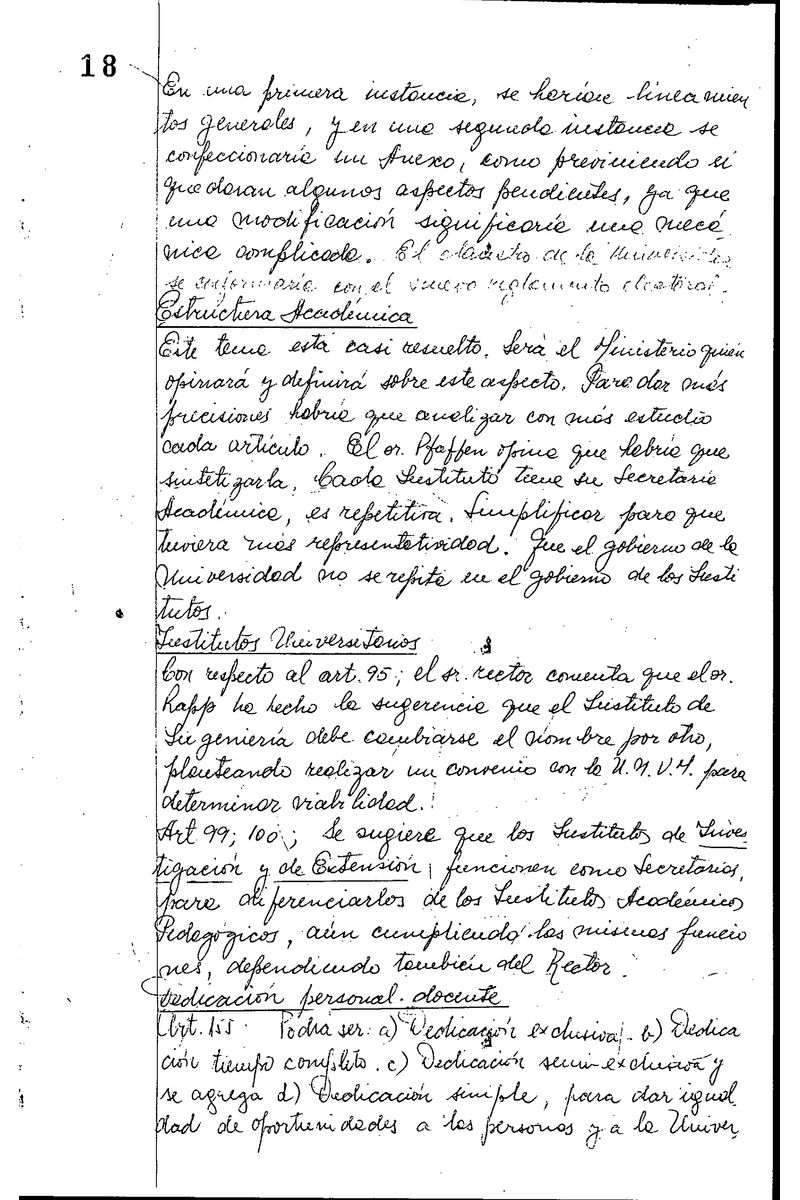 18
En una primera instancia, se harían lineamien
tos generales, y en una segunda instancia se
confeccionaría un Anexo, como previniendo si
quedaran algunos aspectos pendientes, ya que
una modificación significaría una mecá
nica complicada. El claustro de la Universidad
se conformaría con el nuevo reglamento electoral.
Estructura Académica
Este tema está casi resuelto. Será el Ministerio quien
opinará y definirá sobre este aspecto. Para dar más
precisiones habría que analizar con más estudio
cada artículo. El dr. Pfaffen opina que habría que
sintetizarla. Cada Instituto tiene su Secretaría
Académica, es repetitiva. Simplificar para que
tuviera más representatividad. Que el gobierno de la
Universidad no se repita en el gobierno de los Insti
tutos.
Institutos Universitarios
Con respecto al art. 95; el sr. rector comenta que el dr.
Rapp ha hecho la sugerencia que el Instituto de
Ingeniería debe cambiarse el nombre por otro,
planteando realizar un convenio con la U.N.V.M. para
determinar viabilidad.
Art 99; 100; Se sugiere que los Institutos de Inves
tigación y de Extensión, funcionen como Secretarías,
para diferenciarlos de los Institutos Académicos
Pedagógicos, aún cumpliendo las mismas funcio
nes, dependiendo también del Rector.
Dedicación personal docente
Art. 155 Podrá ser: a) Dedicación exclusiva. b) Dedica
ción tiempo completo. c) Dedicación semi-exclusiva y
se agrega d) Dedicación simple, para dar igual
dad de oportunidades a las personas y a la Univer